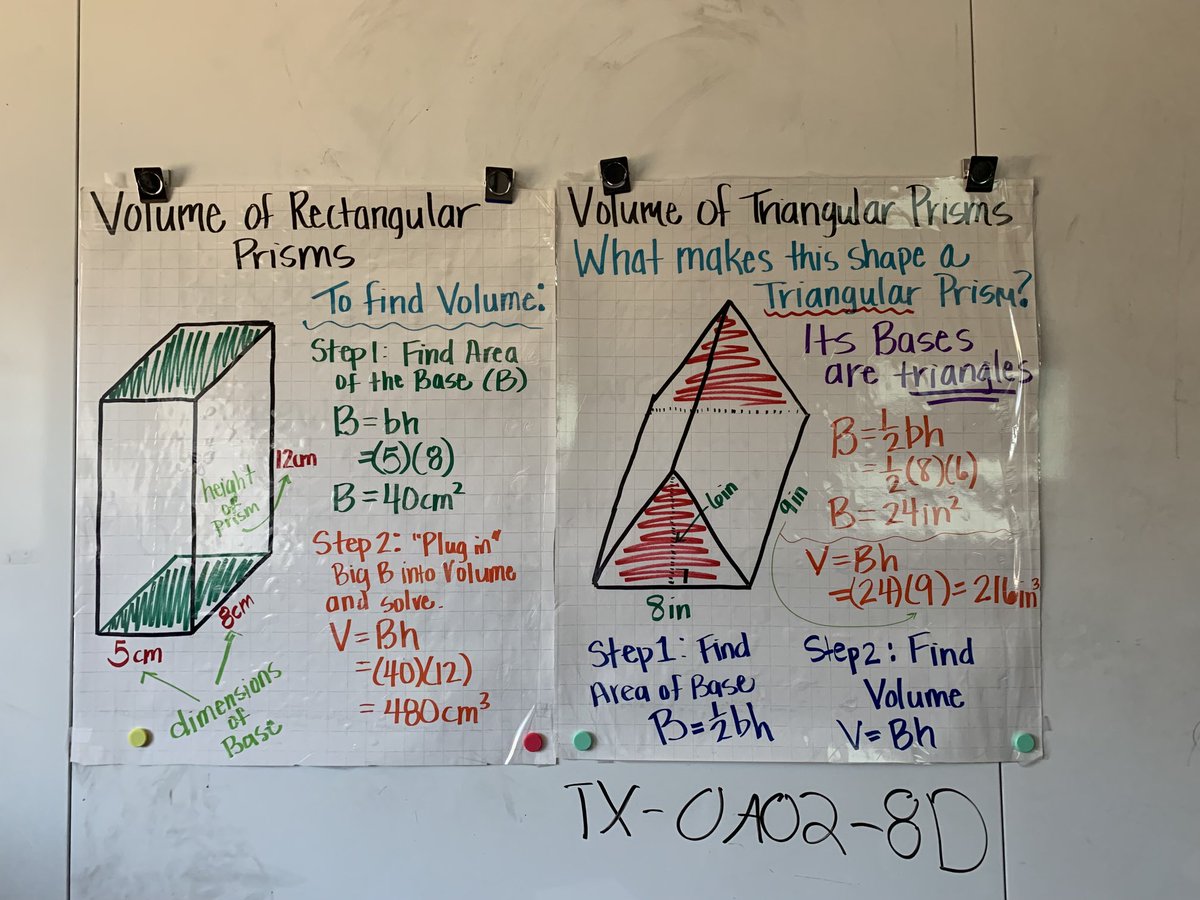 Volume of Rectangular
Prisms
To find Volume:
Step 1: Find Area
of the Base (B)
B = bh
=(5)(8)
B = 40cm²
Step 2: "Plug in"
Big B into Volume
and solve.
V = Bh
= (40)(12)
= 480cm³
12cm
height
of
prism
8cm
5cm
dimensions
of
Base
Volume of Triangular Prisms
What makes this shape a
Triangular Prism?
Its Bases
are triangles
B = ½bh
= ½(8)(6)
B = 24in²
V = Bh
=(24)(9) = 216in³
6in
9in
8in
Step 1: Find
Area of Base
B = ½bh
Step 2: Find
Volume
V = Bh
TX-0A02-8D